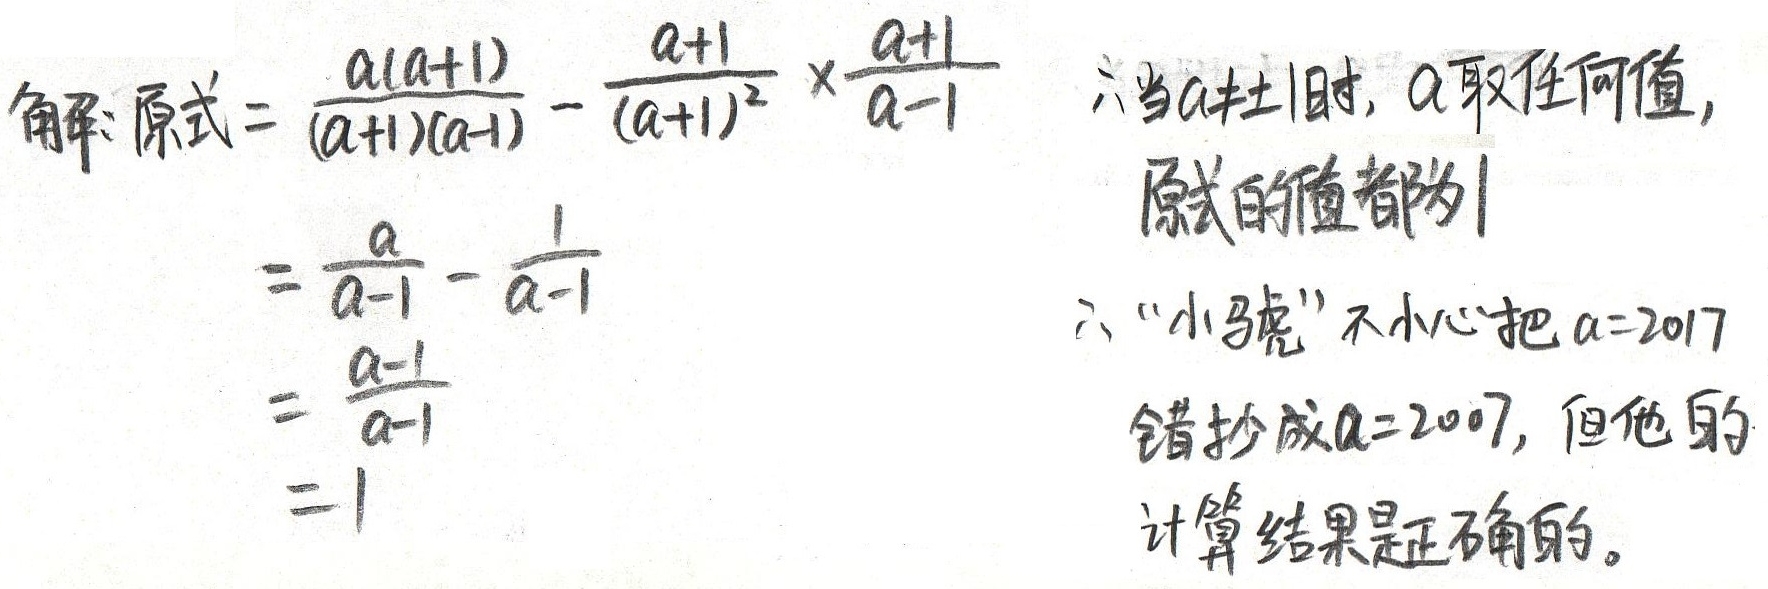 解：原式 = \frac{a(a+1)}{(a+1)(a-1)} - \frac{a+1}{(a+1)^2} × \frac{a+1}{a-1}
= \frac{a}{a-1} - \frac{1}{a-1}
= \frac{a-1}{a-1}
= 1
∴当a≠±1时，a取任何值，
原式的值都为1
∴“小马虎”不小心把a=2017
错抄成a=2007，但他的
计算结果是正确的。